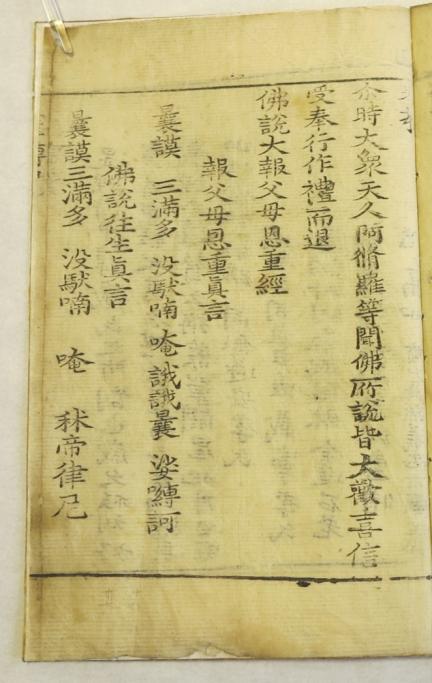 尒時大衆天人阿脩羅等聞佛所說皆大歡喜信
受奉行作禮而退
佛說大報父母恩重經
報父母恩重眞言
曩謨 三滿多 没馱喃 唵 誐誐曩 娑嚩訶
佛說往生眞言
曩謨三滿多 没馱喃 唵 秫帝律尼